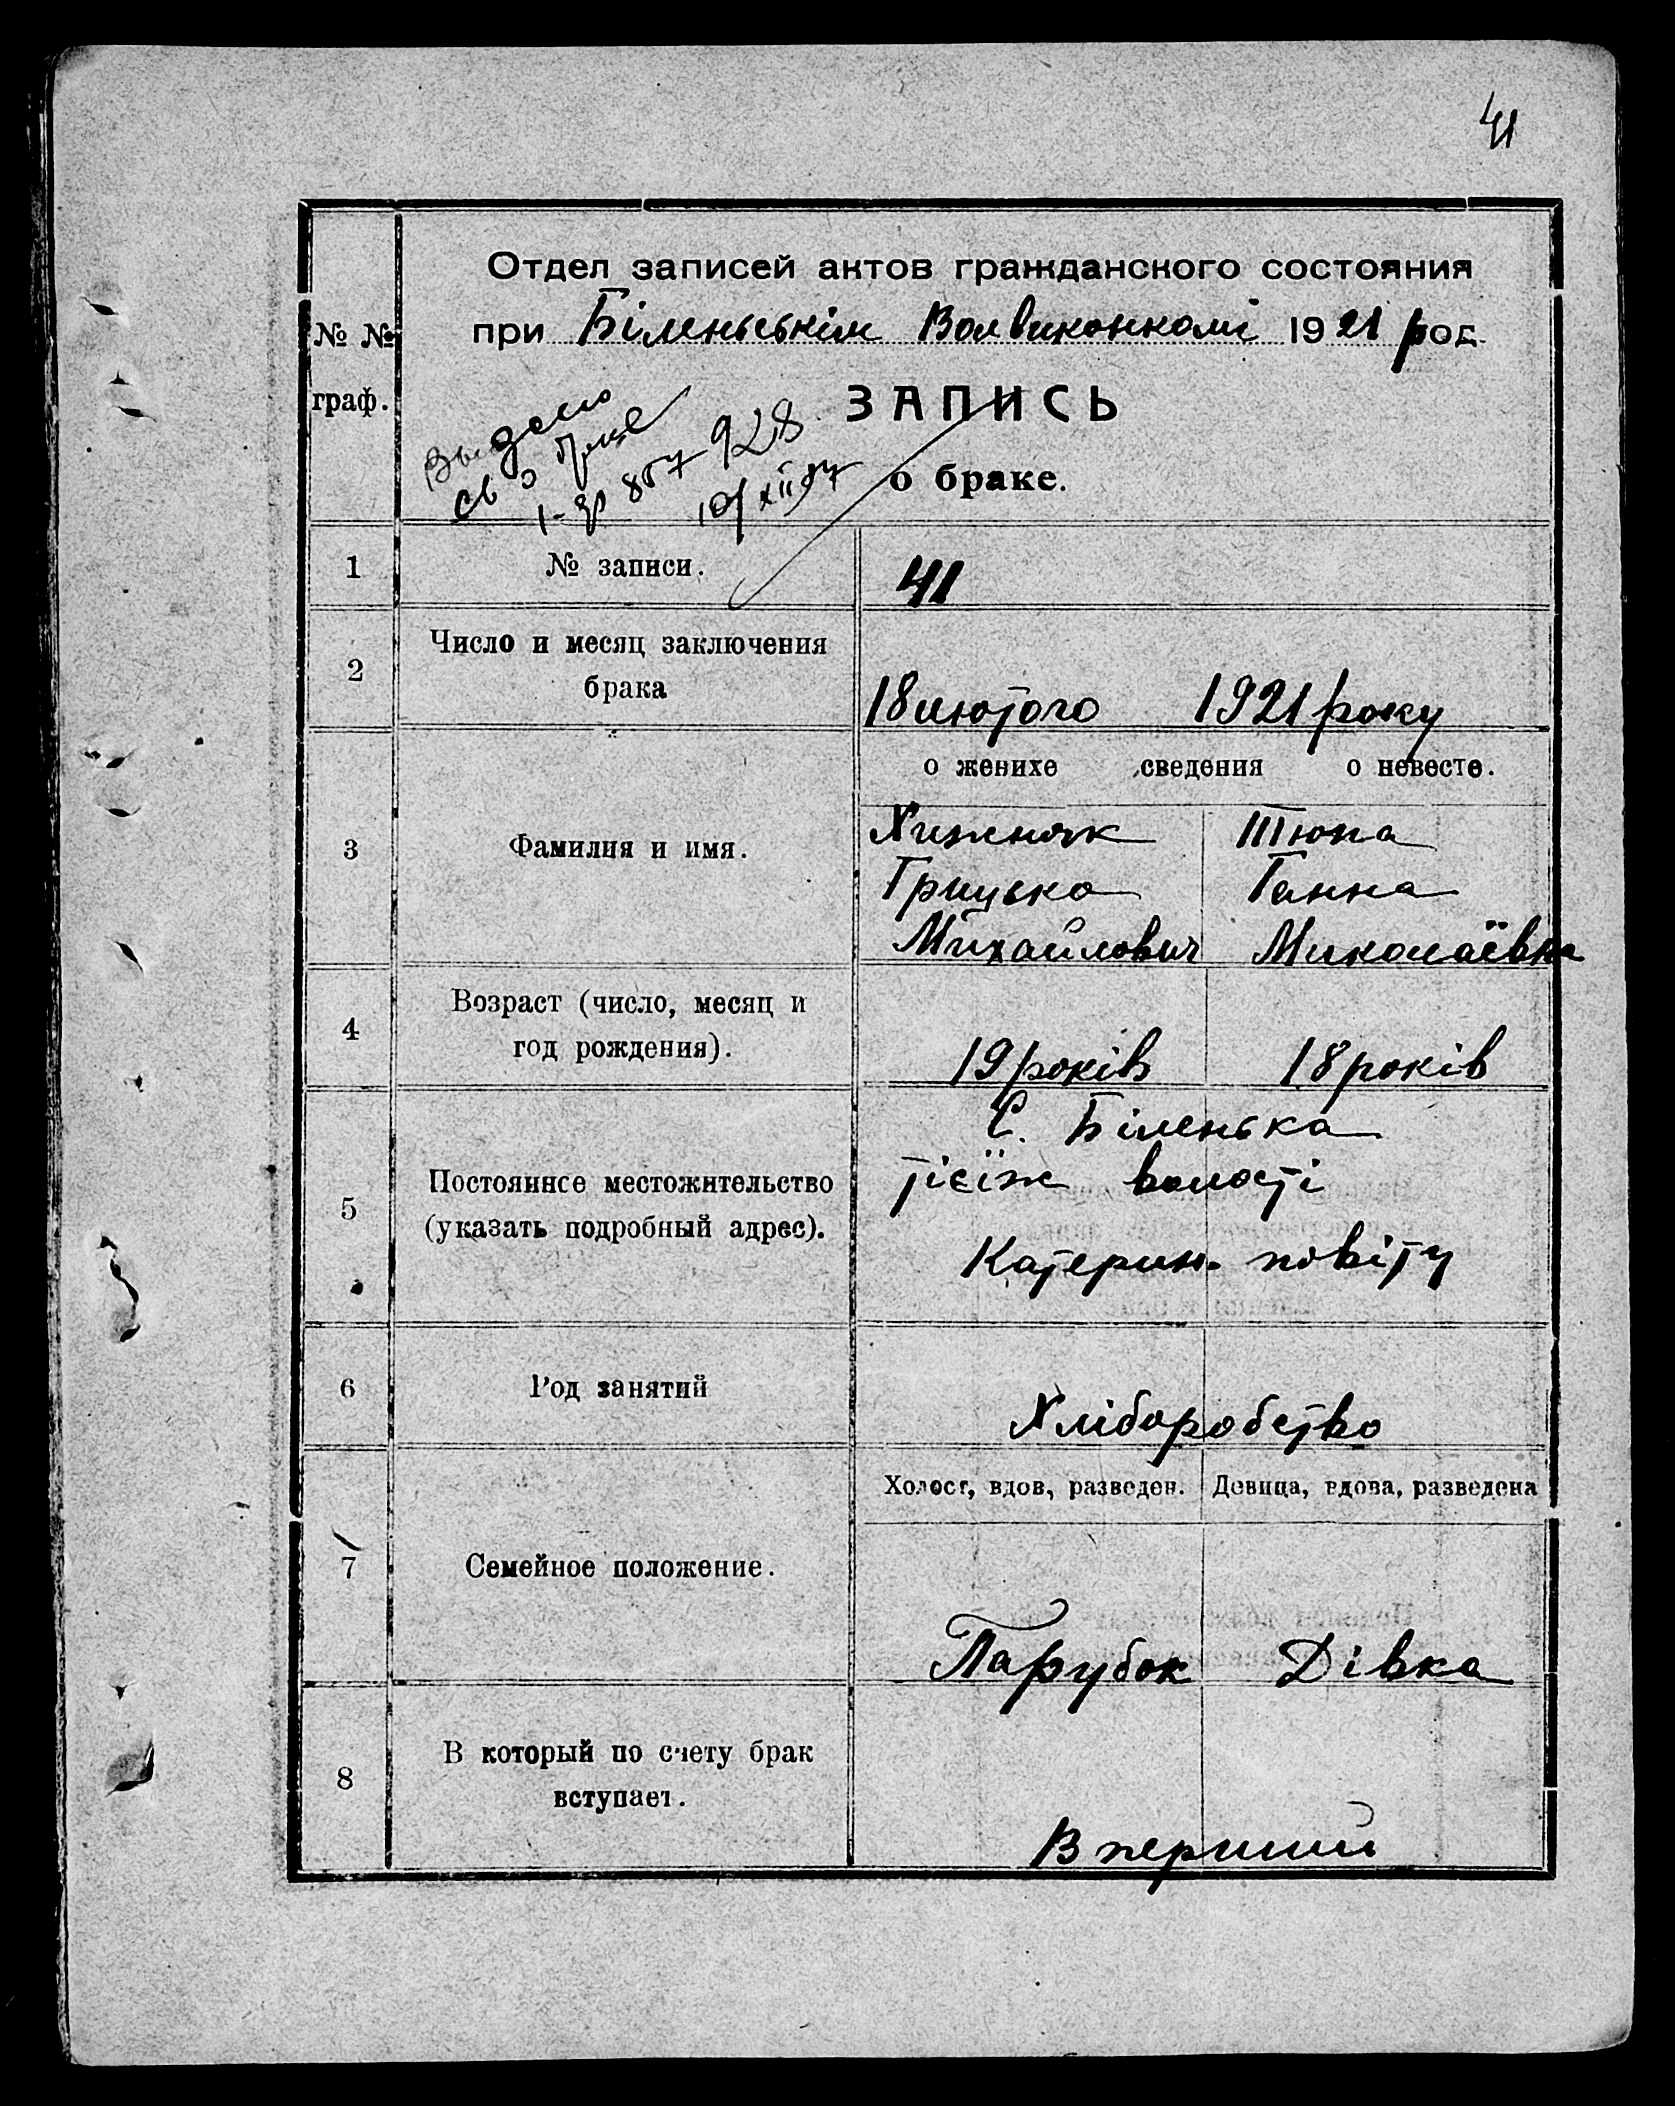 41
Отдел записей актов гражданского состояния
при Біленьськім Волвиконкомі 1921 род.
№ №
граф.
ЗАПИСЬ
о браке.
Выдано
св о браке
1-ЯР 857928
10/XII 97
1 № записи. 41
2 Число и месяц заключения
брака
18 лютого 1921 року
о женихе сведения о невесте.
3 Фамилия и имя.
Хижняк Тюпа
Грицько Ганна
Михайлович Миколаївна
4 Возраст (число, месяц и
год рождения).
19 років 18 років
5 Постоянное местожительство
(указать подробный адрес).
С. Біленька
тієїж волості
Катерин. повіту
6 Род занятий
Хліборобство
Холост, вдов, разведен. Девица, вдова, разведена
7 Семейное положение.
Парубок Дівка
8 В который по счету брак
вступает.
В перший